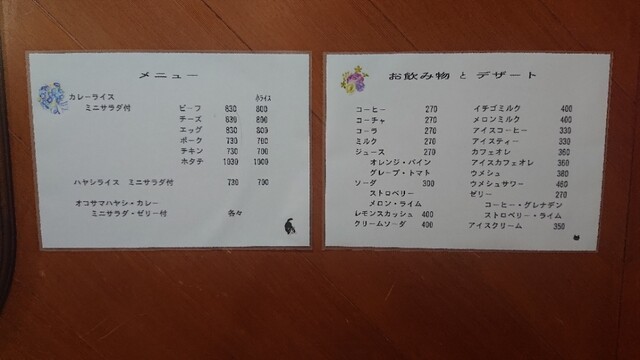 メニュー
小ライス
カレーライス
ミニサラダ付 ビーフ 830 800
チーズ 830 800
エッグ 830 800
ポーク 730 700
チキン 730 700
ホタテ 1030 1000
ハヤシライス ミニサラダ付 730 700
オコサマハヤシ・カレー
ミニサラダ・ゼリー付 各々
お飲み物 と デザート
コーヒー 270
コーチャ 270
コーラ 270
ミルク 270
ジュース 270
オレンジ・パイン
グレープ・トマト
ソーダ 300
ストロベリー
メロン・ライム
レモンスカッシュ 400
クリームソーダ 400
イチゴミルク 400
メロンミルク 400
アイスコーヒー 330
アイスティー 330
カフェオレ 360
アイスカフェオレ 360
ウメシュ 380
ウメシュサワー 460
ゼリー 270
コーヒー・グレナデン
ストロベリー・ライム
アイスクリーム 350